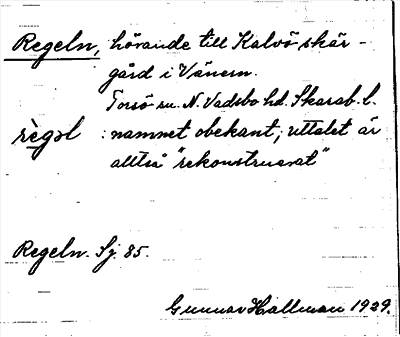 Regeln, hörande till Kalvö skär-
gård i Vänern.
Torsö sn. N. Vadsbo hd. Skarab. l.
règəl : namnet obekant; uttalet är
alltså "rekonstruerat"
Regeln. Sj. 85.
Gunnar Hallman 1929.